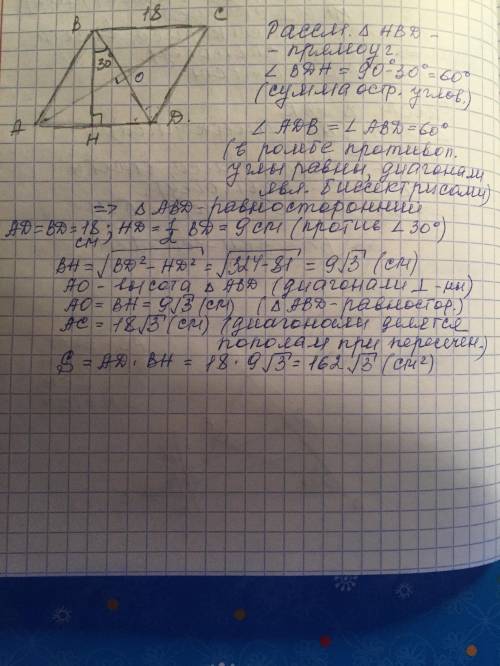 B 18 C
30°
O
A H D.
Рассм. △ HBD -
- прямоуг.
∠ BDH = 90°-30°=60°
(сумма остр. углов.)
∠ ADB = ∠ ABD = 60°
(в ромбе противоп.
углы равны, диагонали
явл. биссектрисами)
=> △ ABD - равносторонний
AD = BD = 18 см; HD = 1/2 BD = 9 см (против ∠30°)
BH = √(BD² - HD²) = √(324 - 81) = 9√3 (см)
AO - высота △ ABD (диагонали ⊥ - ны)
AO = BH = 9√3 (см) (△ ABD - равностор.)
AC = 18√3 (см) (диагонали делятся
пополам при пересечен.)
S = AD · BH = 18 · 9√3 = 162√3 (см²)